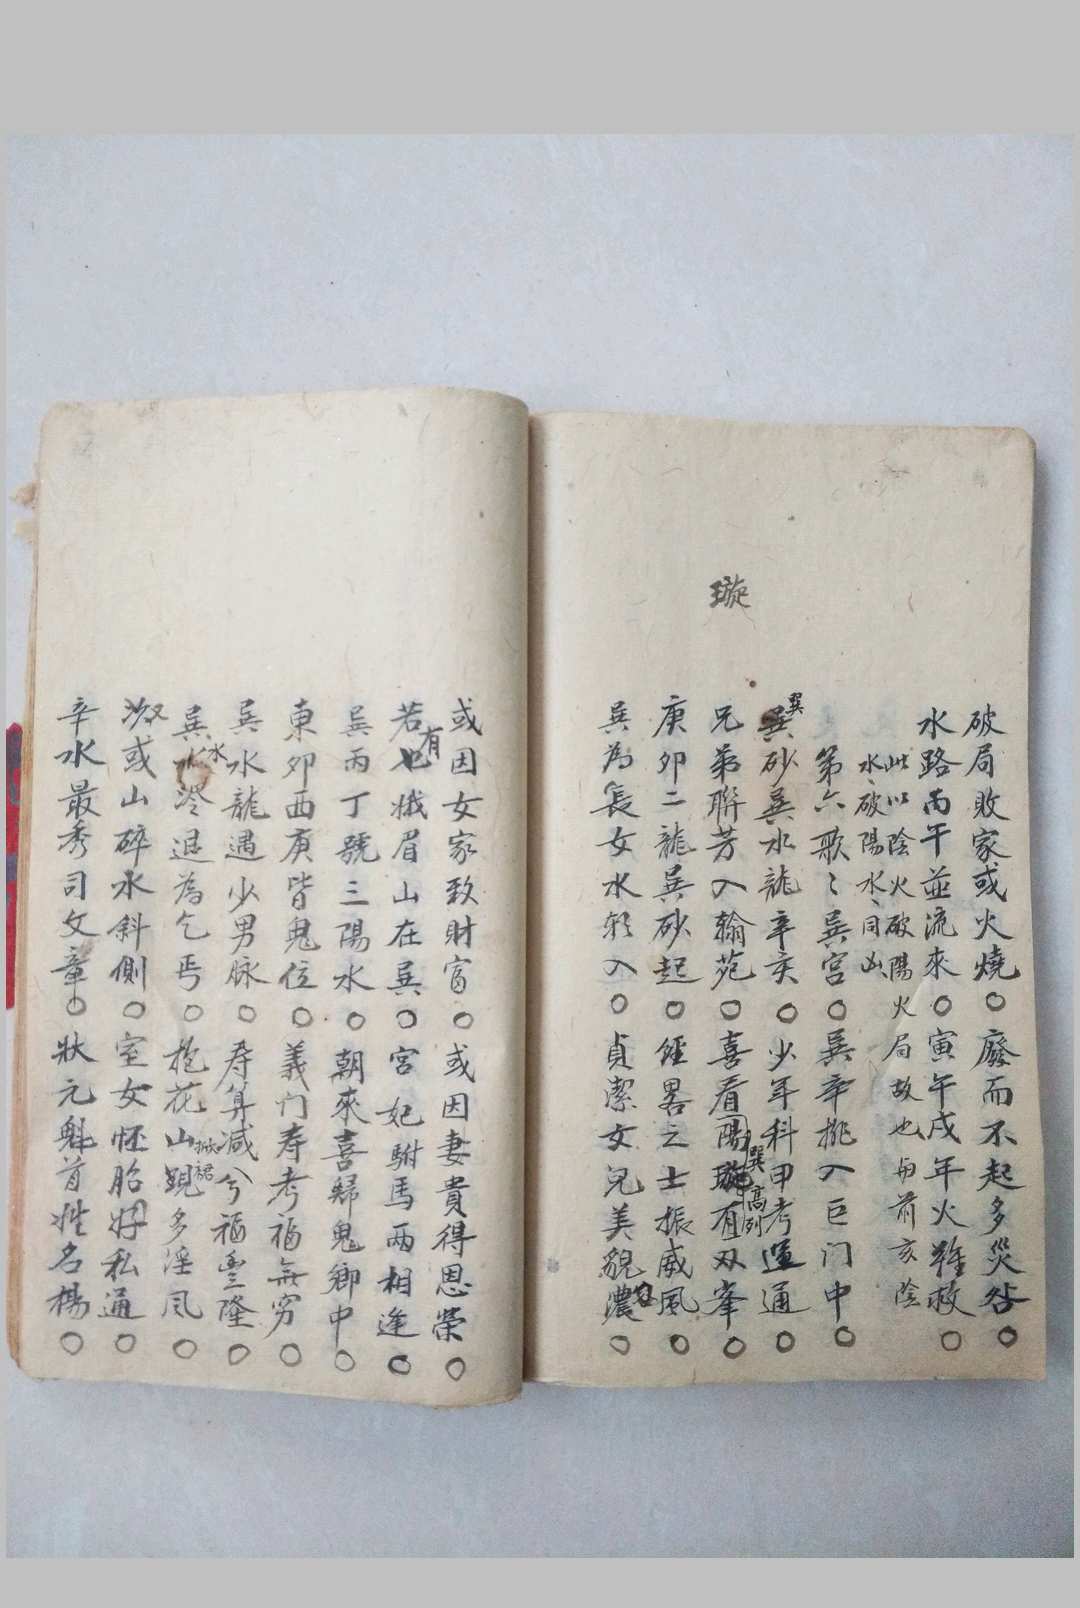 璇
破局敗家或火燒○廢而不起多災咎○
水路丙午並流來○寅午戌年火難救○
此以陰火破陽火局故也与前亥陰
水破陽水同凶
第六歌巽宮○巽辛挑入巨门中○
巽砂巽水龍辛亥○少年科甲考運通○
巽
兄弟聯芳入翰苑○喜看陽璇有双峯○
巽高列
庚卯二龍巽砂起○經畧之士振威風○
巽為長女水彩入○貞潔女兒美貌濃○
或因女家致財富○或因妻貴得恩榮○
有
若也娥眉山在巽○宮妃駙馬两相逢○
巽丙丁號三陽水○朝來喜歸鬼鄉中○
東卯西庚皆鬼位○義门寿考福無穷○
巽水龍遇少男脉○寿算减兮福豊隆○
水
巽水冷退為乞丐○抱花山現多淫风○
掀裙
或山碎水斜側○室女怀胎好私通○
辛水最秀司文章○狀元魁首姓名楊○